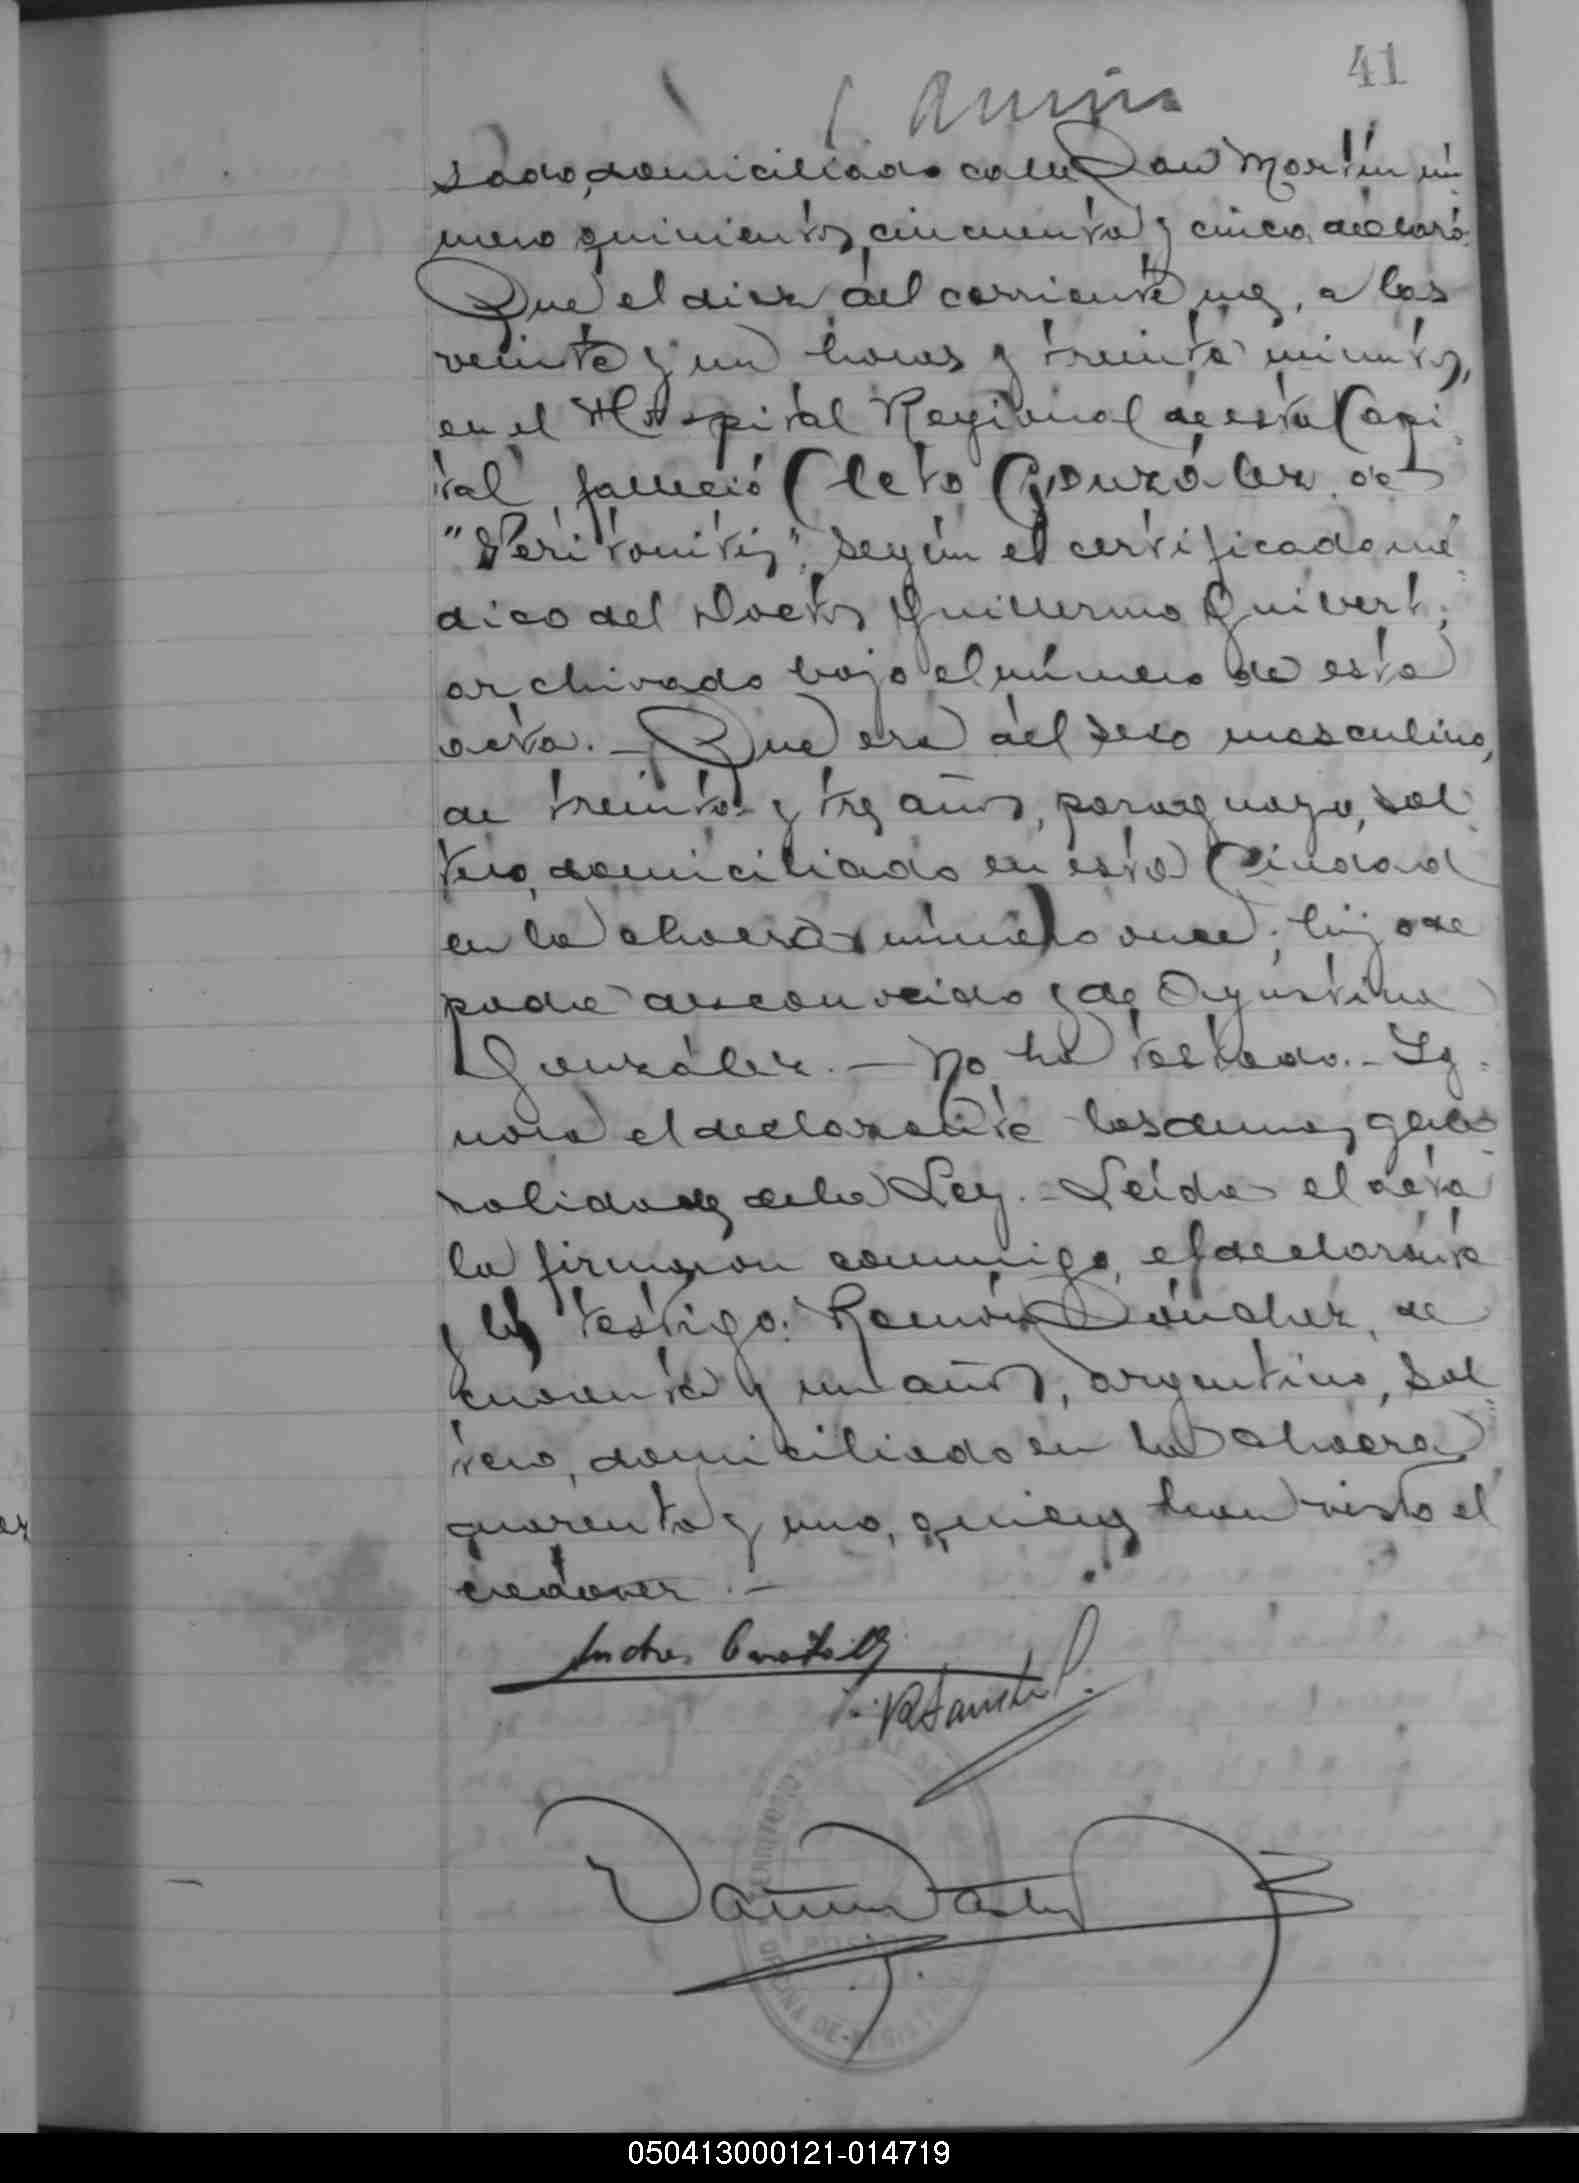 41
sado, domiciliado calle San Martín nú-
mero quinientos cincuenta y cinco, declaró:
Que el diez del corriente mes, a las
veinte y un horas y treinta minutos,
en el Hospital Regional de esta Capi-
tal, falleció Cleto González de
"Peritonitis", según el certificado mé-
dico del Doctor Guillermo Quivert,
archivado bajo el número de esta
acta. — Que era del sexo masculino,
de treinta y tres años, paraguayo, sol-
tero, domiciliado en esta Ciudad
en la chacra número once; hijo de
padre desconocido y de Agustina
González. — No ha testado. — Ig-
nora el declarante las demas gene-
ralidades de la Ley. — Leída el acta
la firmaron conmigo, el declarante
y el testigo: Ramón Sánchez, de
cuarenta y un años, argentino, sol-
tero, domiciliado en la chacra
cuarenta y uno, quienes han visto el
cadáver. —
Andres
OFICINA DE REGISTRO
050413000121-014719